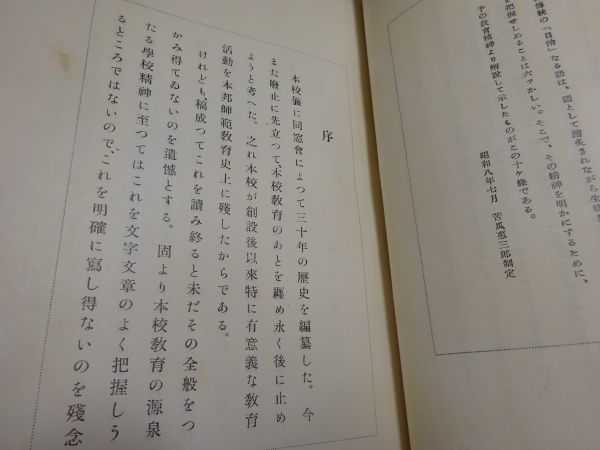 傳統の「自治」なる語は、語として膾炙されながら生
把握せしめることは六ツかしい。そこで、その精神を明かにするために、
予の教育精神より解説して示したものがこの十ケ條である。
昭和八年七月　苦瓜惠三郎制定
序
本校曩に同窓會によつて三十年の歷史を編纂した。今
また廢止に先立つて、本校敎育のあとを纒め永く後に止め
ようと考へた。之れ本校が創設後以來特に有意義な敎育
活動を本邦師範敎育史上に殘したからである。
けれども稿成つてこれを讀み終ると未だその全般をつ
かみ得てゐないのを遺憾とする。固より本校敎育の源泉
たる學校精神に至つてはこれを文字文章のよく把握しう
るところではないので、これを明確に寫し得ないのを殘念